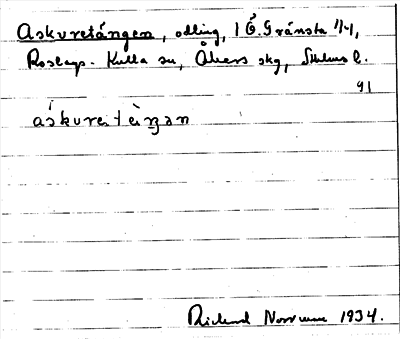 Askvretängen, odling, 1 Ö. Gränsta 1/4,
Roslags-Kulla sn, Åkers skg, Sthlms l.
91
áskvret èŋ̀an
Rickard Norrman 1934.